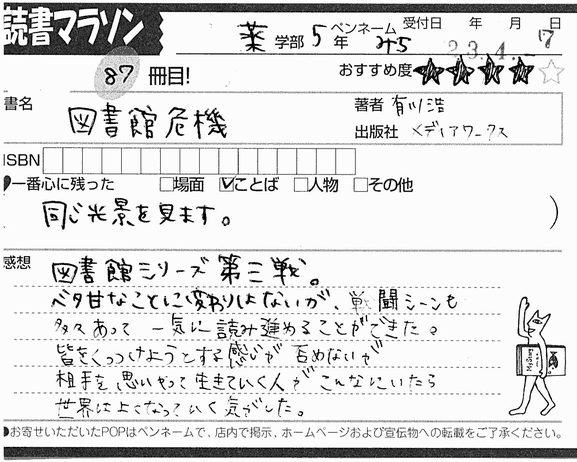 読書マラソン
薬 学部 5 年 ペンネーム みち 受付日 年 月 日
23.4.-7
87 冊目! おすすめ度 ★★★★☆
書名 図書館危機
著者 有川浩
出版社 メディアワークス
ISBN
一番心に残った □場面 ☑ことば □人物 □その他
同じ光景を見ます。 )
感想 図書館シリーズ第三戦。
ベタ甘なことに変わりはないが、戦闘シーンも
多々あって 一気に読み進めることができた。
皆をくっつけようとする感じが否めないが
相手を思いやって生きていく人がこんなにいたら
世界はよくなっていく気がした。
Mystery
●お寄せいただいたPOPはペンネームで、店内で掲示、ホームページおよび宣伝物への転載をご了承ください。